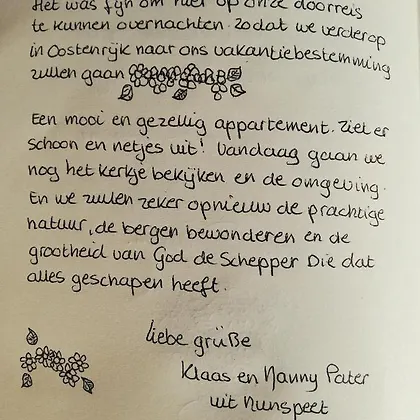 Het was fijn om hier op onze doorreis
te kunnen overnachten. Zodat we verderop
in Oostenrijk naar ons vakantiebestemming
zullen gaan
Een mooi en gezellig appartement. Ziet er
schoon en netjes uit! Vandaag gaan we
nog het kerkje bekijken en de omgeving.
En we zullen zeker opnieuw de prachtige
natuur, de bergen bewonderen en de
grootheid van God de Schepper Die dat
alles geschapen heeft.
Liebe grüße
Klaas en Nanny Pater
uit Nunspeet